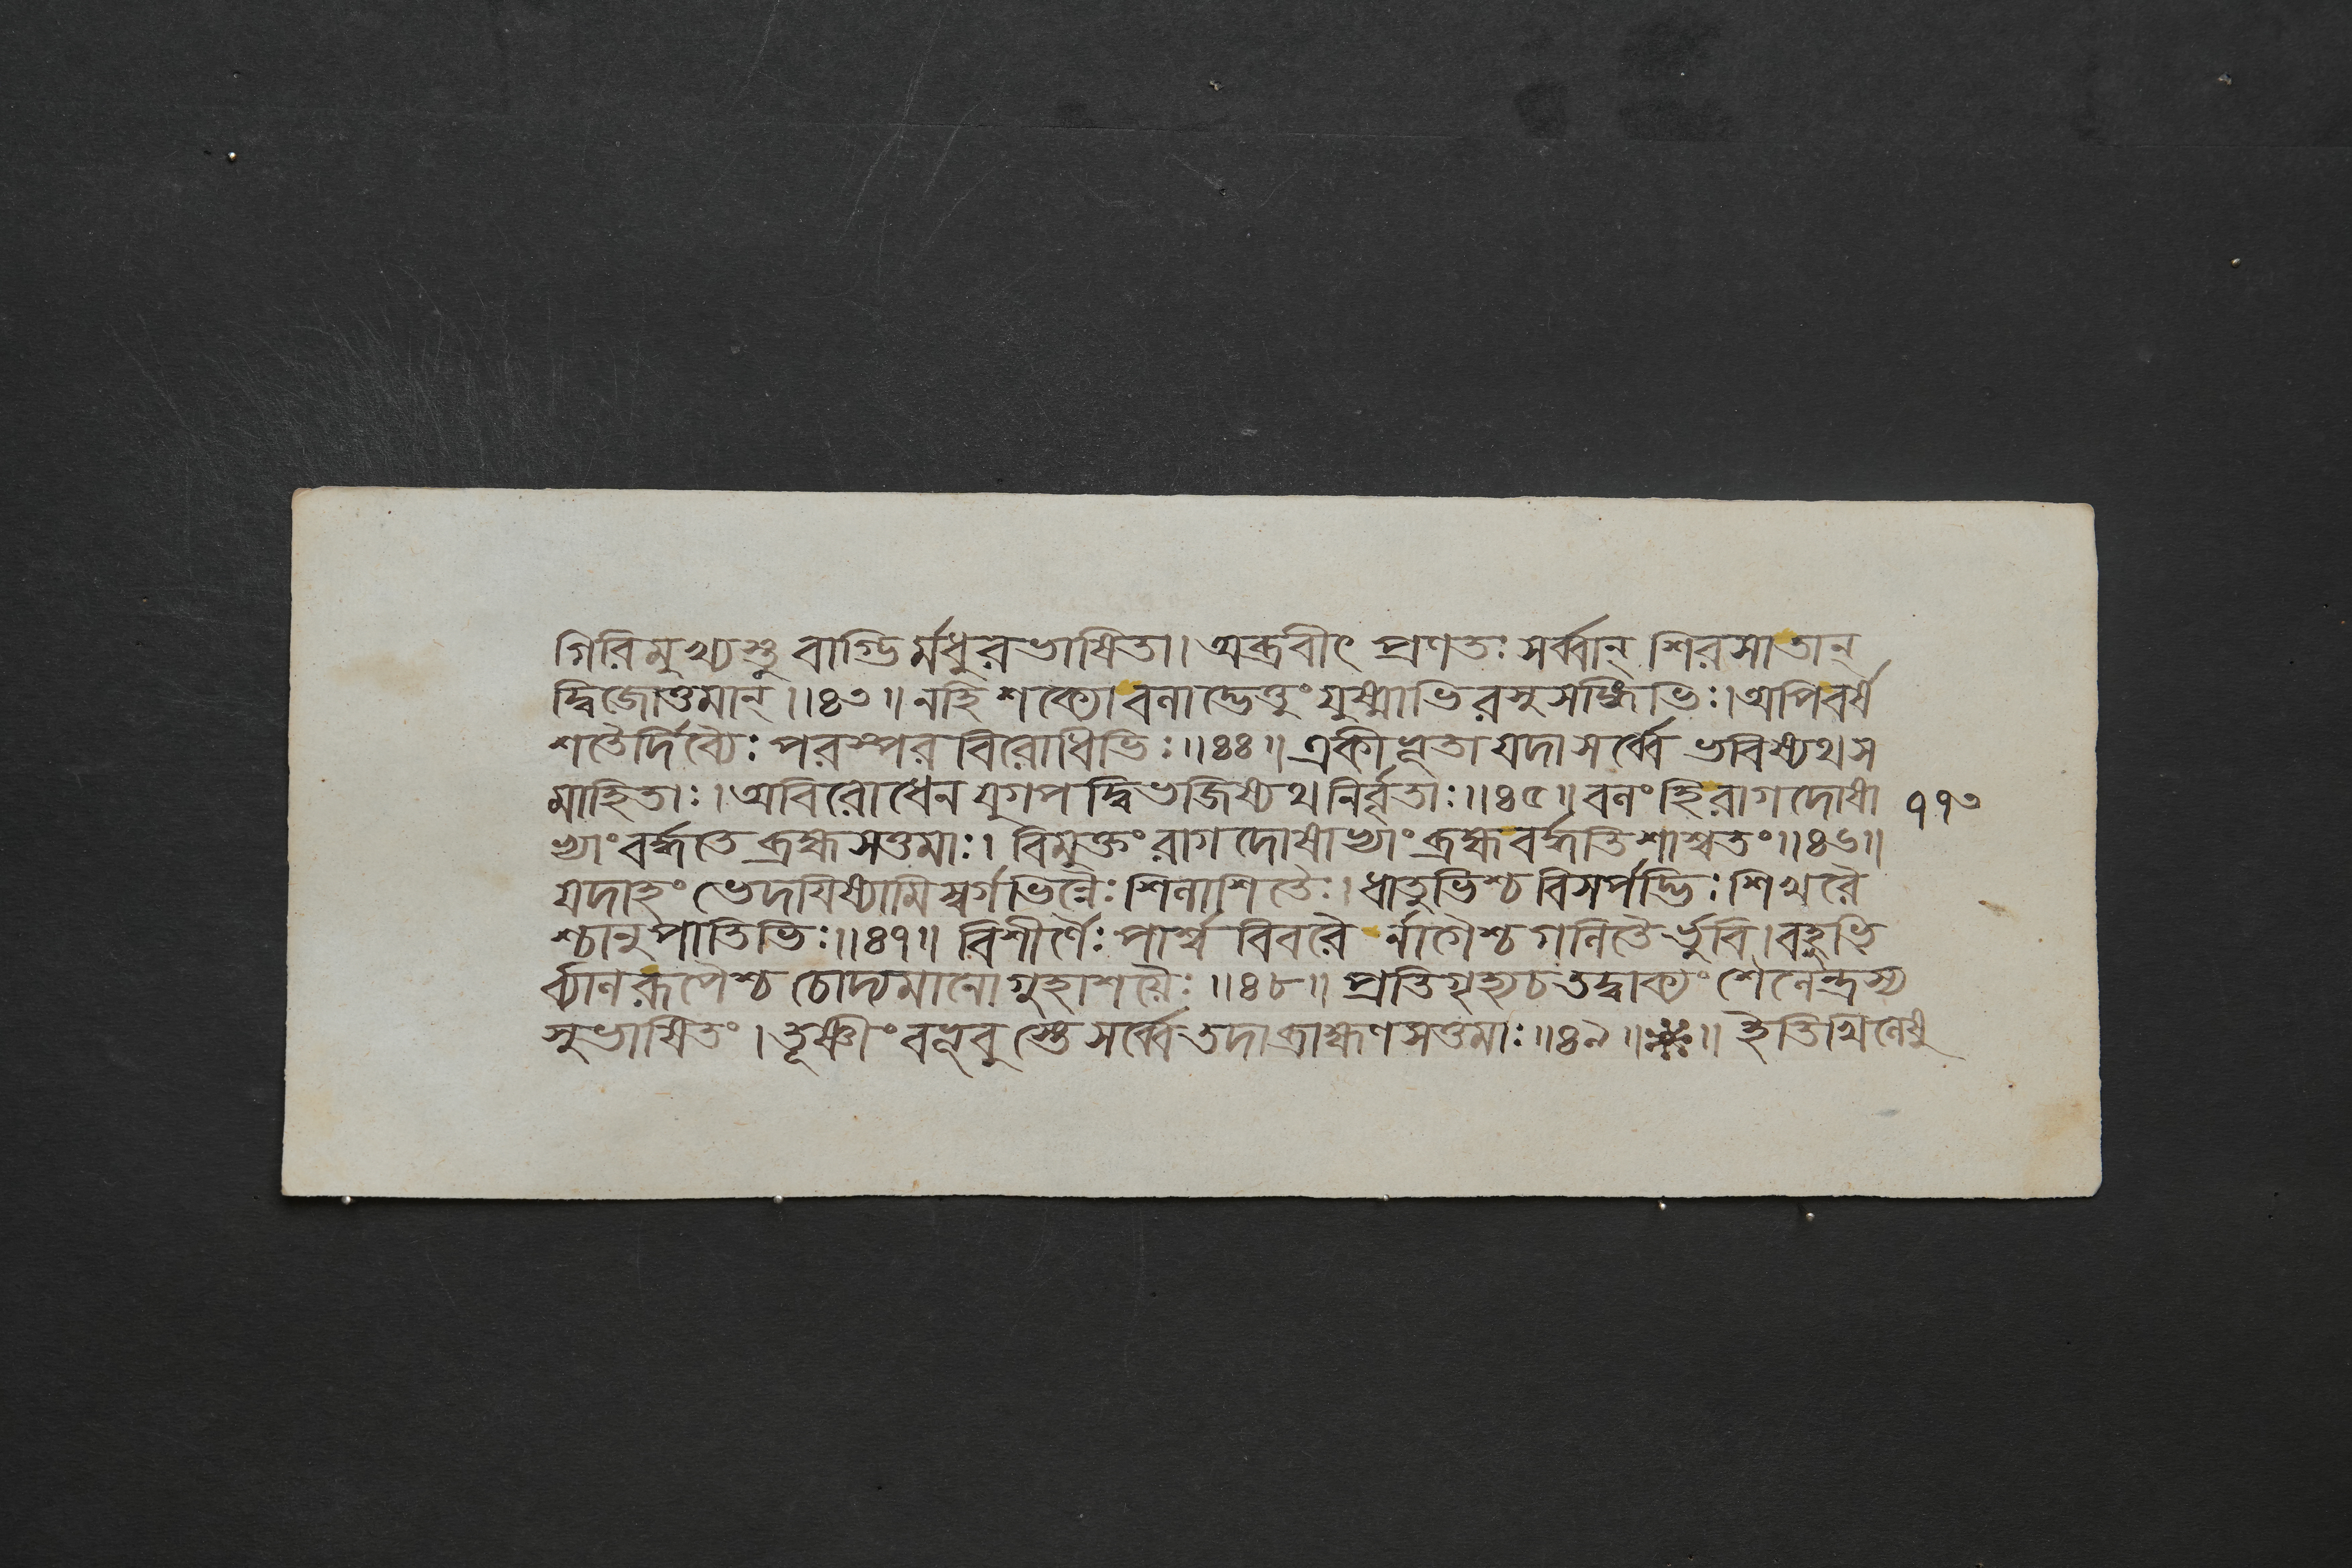 গিরিমুখ্যস্তু বাগ্ভির্মধুরভাষিতা। অব্রবীৎ প্রণতঃ সর্ব্বান্ শিরসাতান্
দ্বিজোত্তমান্॥৪৩॥ নহি শক্যোবলাদ্ভেত্তুং যুষ্মাভিরসুসন্ধিভিঃ।অপিবর্ষ
শতৈর্দিব্যৈঃ পরস্পর বিরোধিভিঃ॥৪৪॥ একীভূতা যদা সর্ব্বে ভবিষ্যথস
মাহিতাঃ। অবিরোধেন যুগপদ্বিভজিষ্যথ নির্বৃতাঃ॥৪৫॥ বলং হি রাগদোষা
ভ্যাং বর্দ্ধতে ব্রহ্মসত্তমাঃ। বিমুক্তং রাগদোষাভ্যাং ব্রহ্মবর্দ্ধতি শাশ্বতং॥৪৬॥
যদাহং ভেদয়িষ্যামি স্বর্গভিন্নৈঃ শিলাশিতৈঃ। ধাতুভিশ্চ বিসর্পদ্ভিঃ শিখরৈ
শ্চানুপাতিভিঃ॥৪৭॥ বিশীর্ণৈঃ পার্শ্ব বিবরৈর্নাগৈশ্চ গলিতৈর্ভুবি। বহুভি
র্ব্যালরূপৈশ্চ চোদ্যমানো গুহাশয়ৈঃ॥৪৮॥ প্রতিগৃহ্যচ তদ্বাক্যং শৈলেন্দ্রস্য
সুভাষিতং। তূষ্ণীং বভূবুস্তে সর্ব্বে তদা ব্রাহ্মণসত্তমাঃ॥৪৯॥ ॥ ইতি খিলেষু
১১৩